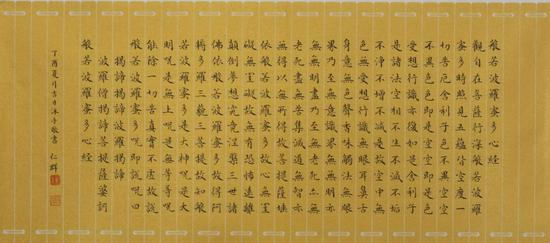 般若波羅蜜多心經
觀自在菩薩行深般若波羅
蜜多時照見五蘊皆空度一
切苦厄舍利子色不異空空
不異色色即是空空即是色
受想行識亦復如是舍利子
是諸法空相不生不滅不垢
不淨不增不減是故空中無
色無受想行識無眼耳鼻舌
身意無色聲香味觸法無眼
界乃至無意識界無無明亦
無無明盡乃至無老死亦無
老死盡無苦集滅道無智亦
無得以無所得故菩提薩埵
依般若波羅蜜多故心無罣
礙無罣礙故無有恐怖遠離
顛倒夢想究竟涅槃三世諸
佛依般若波羅蜜多故得阿
耨多羅三藐三菩提故知般
若波羅蜜多是大神呪是大
明呪是無上呪是無等等呪
能除一切苦真實不虛故說
般若波羅蜜多呪即說呪曰
揭諦揭諦波羅揭諦
波羅僧揭諦菩提薩婆訶
般若波羅蜜多心經
丁酉夏月吉日沐手敬書 仁